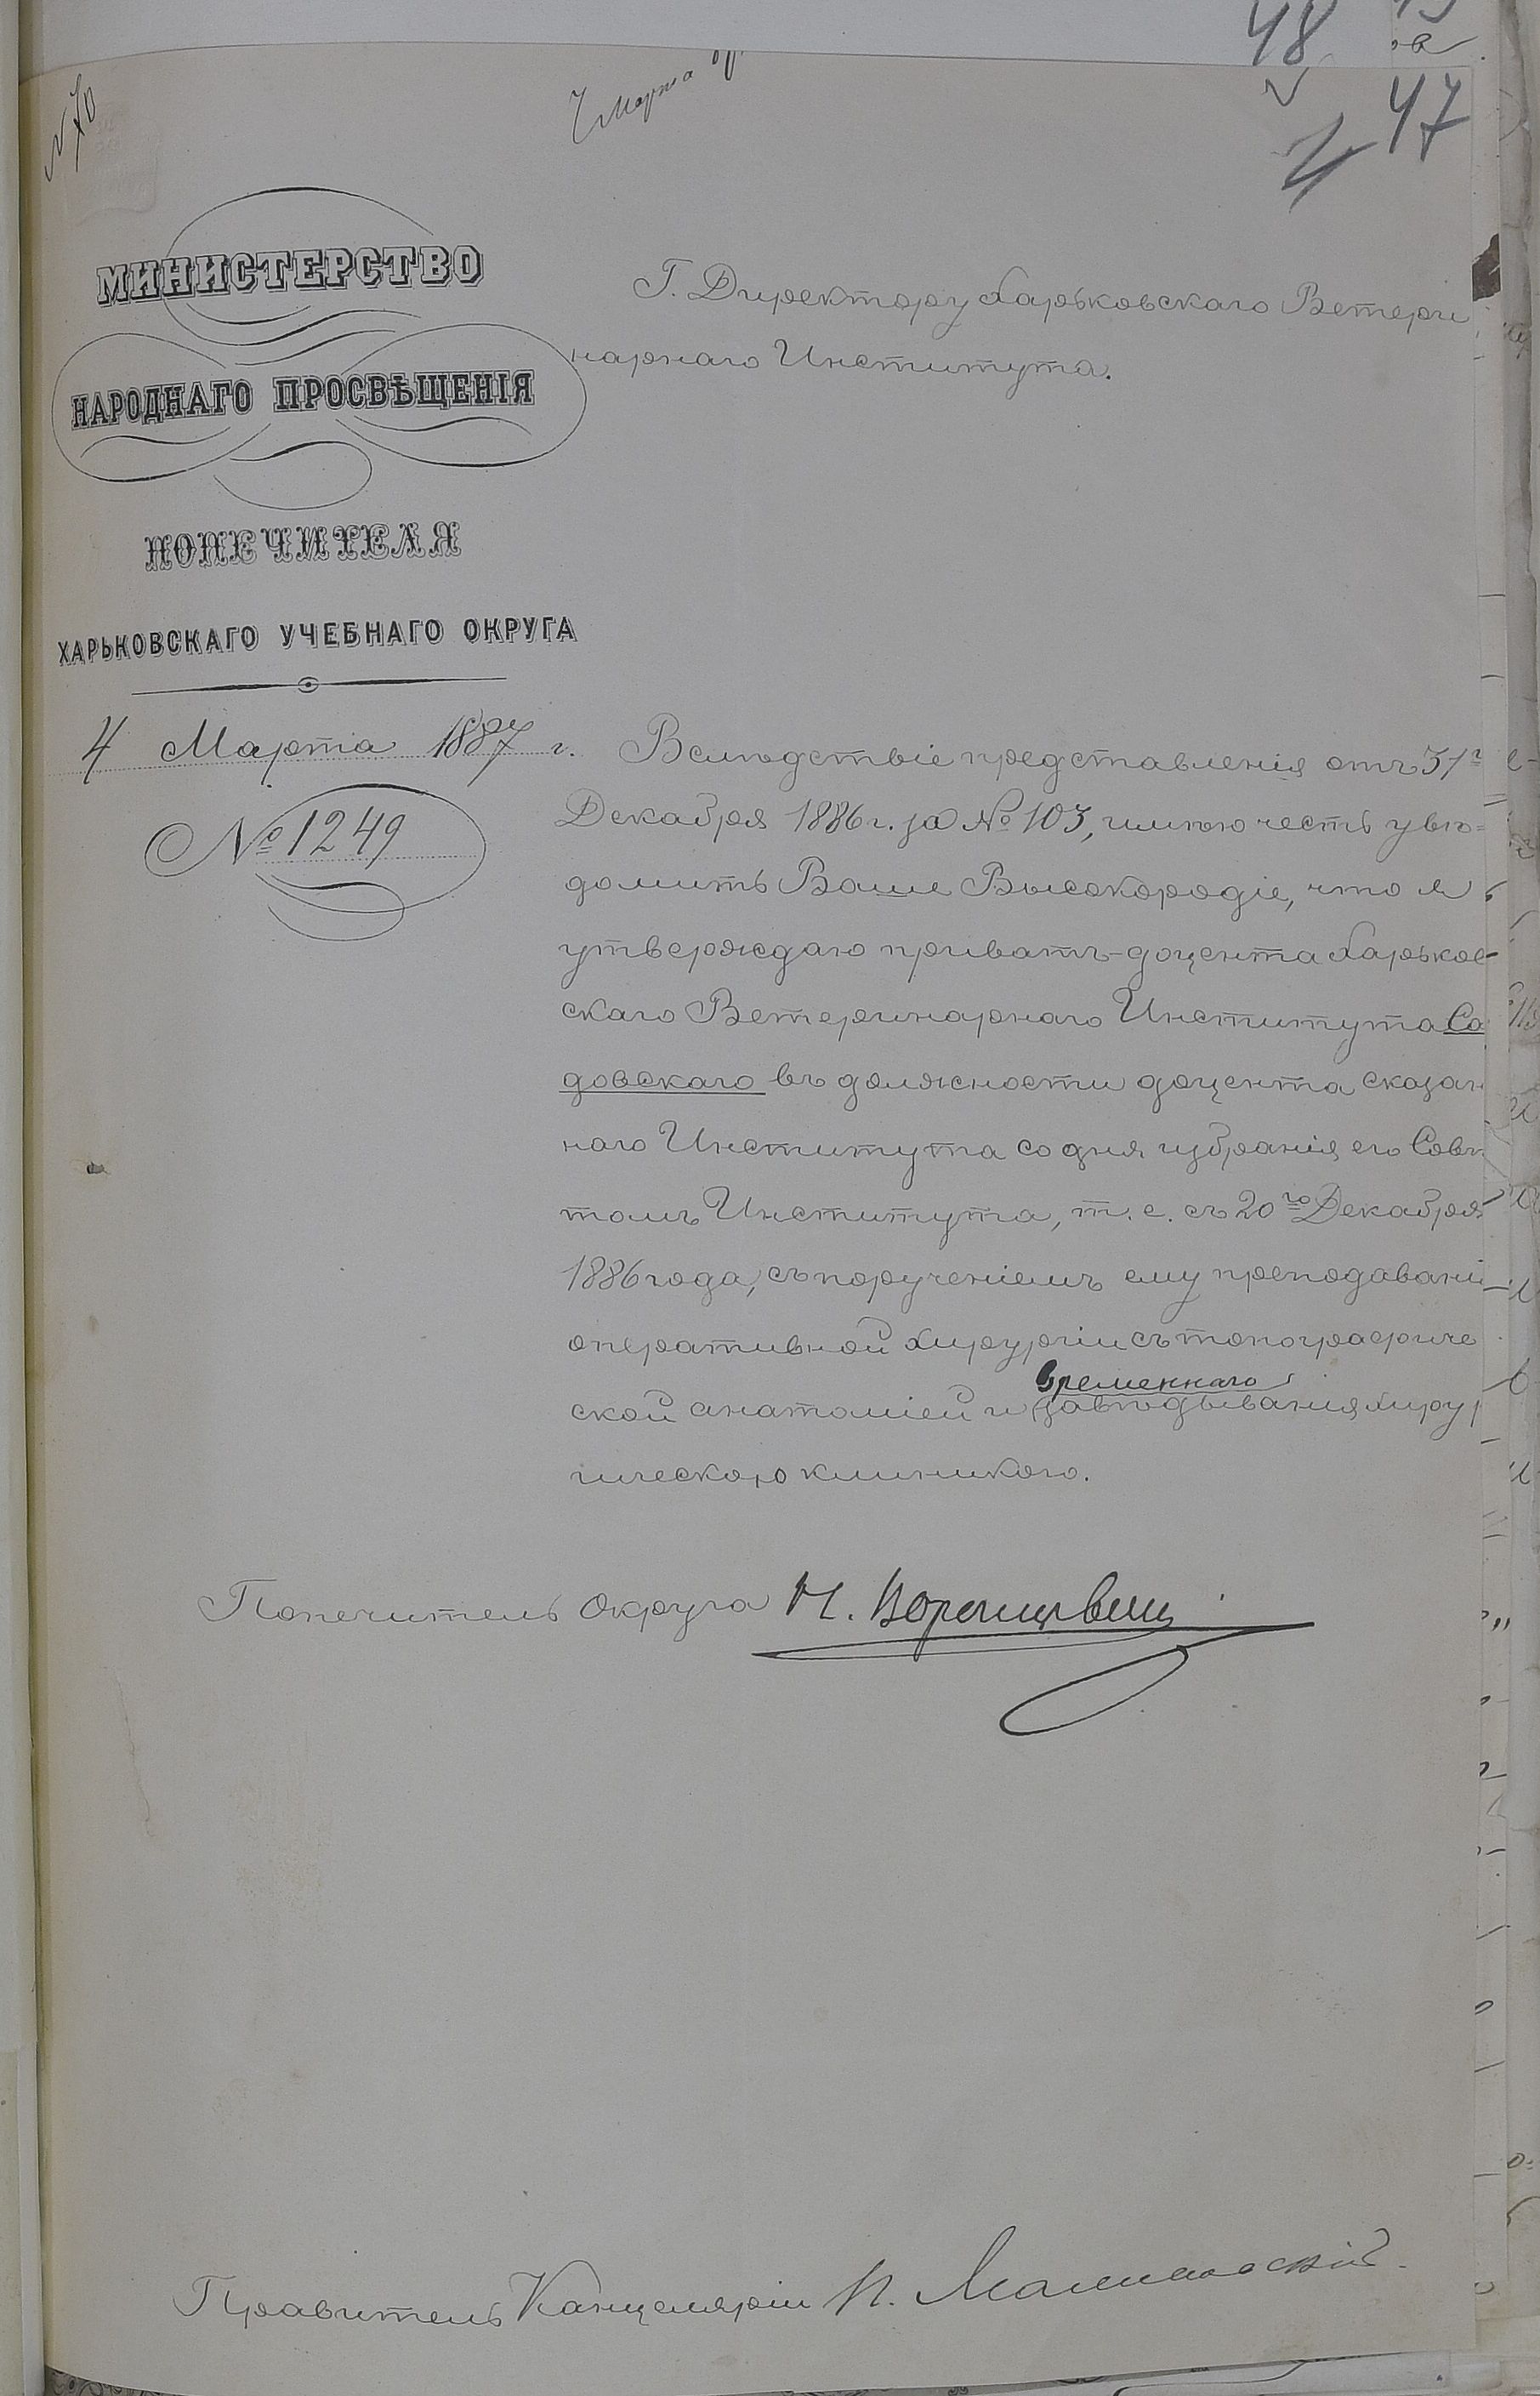 48
47
№ 70
7 Марта
МИНИСТЕРСТВО
НАРОДНАГО ПРОСВѢЩЕНІЯ
ПОПЕЧИТЕЛЯ
ХАРЬКОВСКАГО УЧЕБНАГО ОКРУГА
4 Марта 1887 г.
№ 1249
Г. Директору Харьковскаго Ветери
нарнаго Института.
Вслѣдствіе представленія отъ 31 г
Декабря 1886 г. за № 103, имѣю честь увѣ=
домить Ваше Высокородіе, что я
утверждаю приватъ-доцента Харьков
скаго Ветеринарнаго Института Са
довскаго въ должности доцента сказан
наго Института со дня избранія его Совѣ
томъ Института, т. е. съ 20го Декабря
1886 года, съ порученіемъ ему преподавані
оперативной хирургіи съ топографиче
временнаго
ской анатоміей и завѣдыванія хирур
гическою клиникою.
Попечитель Округа Н. Воронцовъ
Правитель Канцеляріи